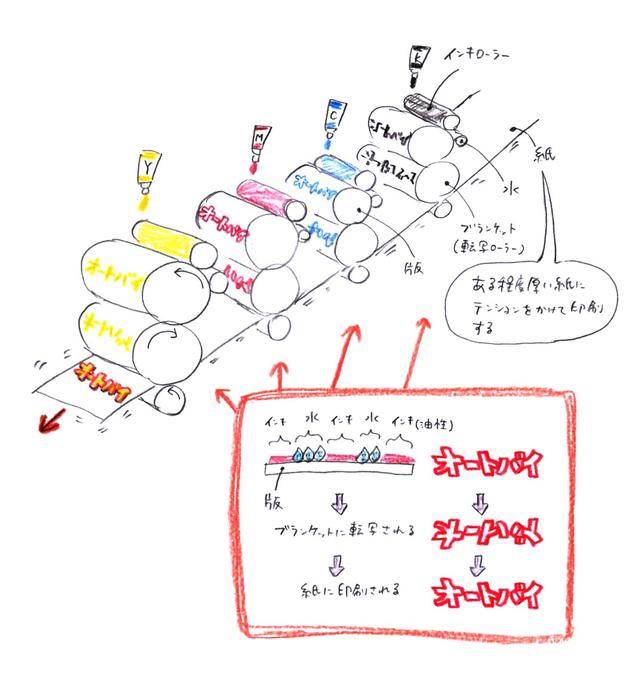 K
インキローラー
C
M
Y
紙
水
ブランケット
(転写ローラー)
版
ある程度厚い紙に
テンションをかけて印刷
する
オートバイ
オートバイ
オートバイ
オートバイ
オートバイ
インキ 水 インキ 水 インキ(油性)
オートバイ
版
ブランケットに転写される
オートバイ
紙に印刷される
オートバイ